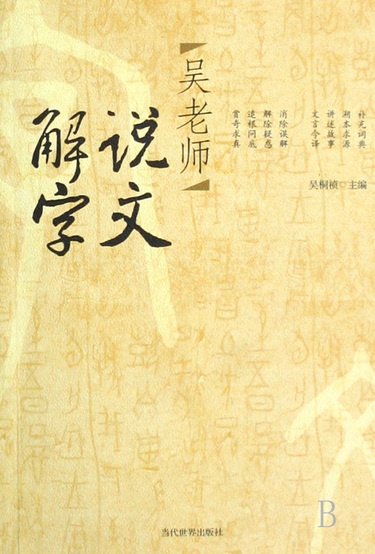 吴老师
说文
解字
补充词典
溯本求源
讲述故事
文言今译
消除误解
解除疑惑
追根问底
赏奇求真
吴桐祯 主编
当代世界出版社
B